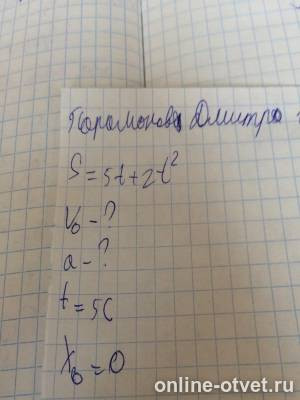 Парамонов Дмитро
S=5t+2t²
V₀-?
a-?
t=5c
X₀=0
online-otvet.ru